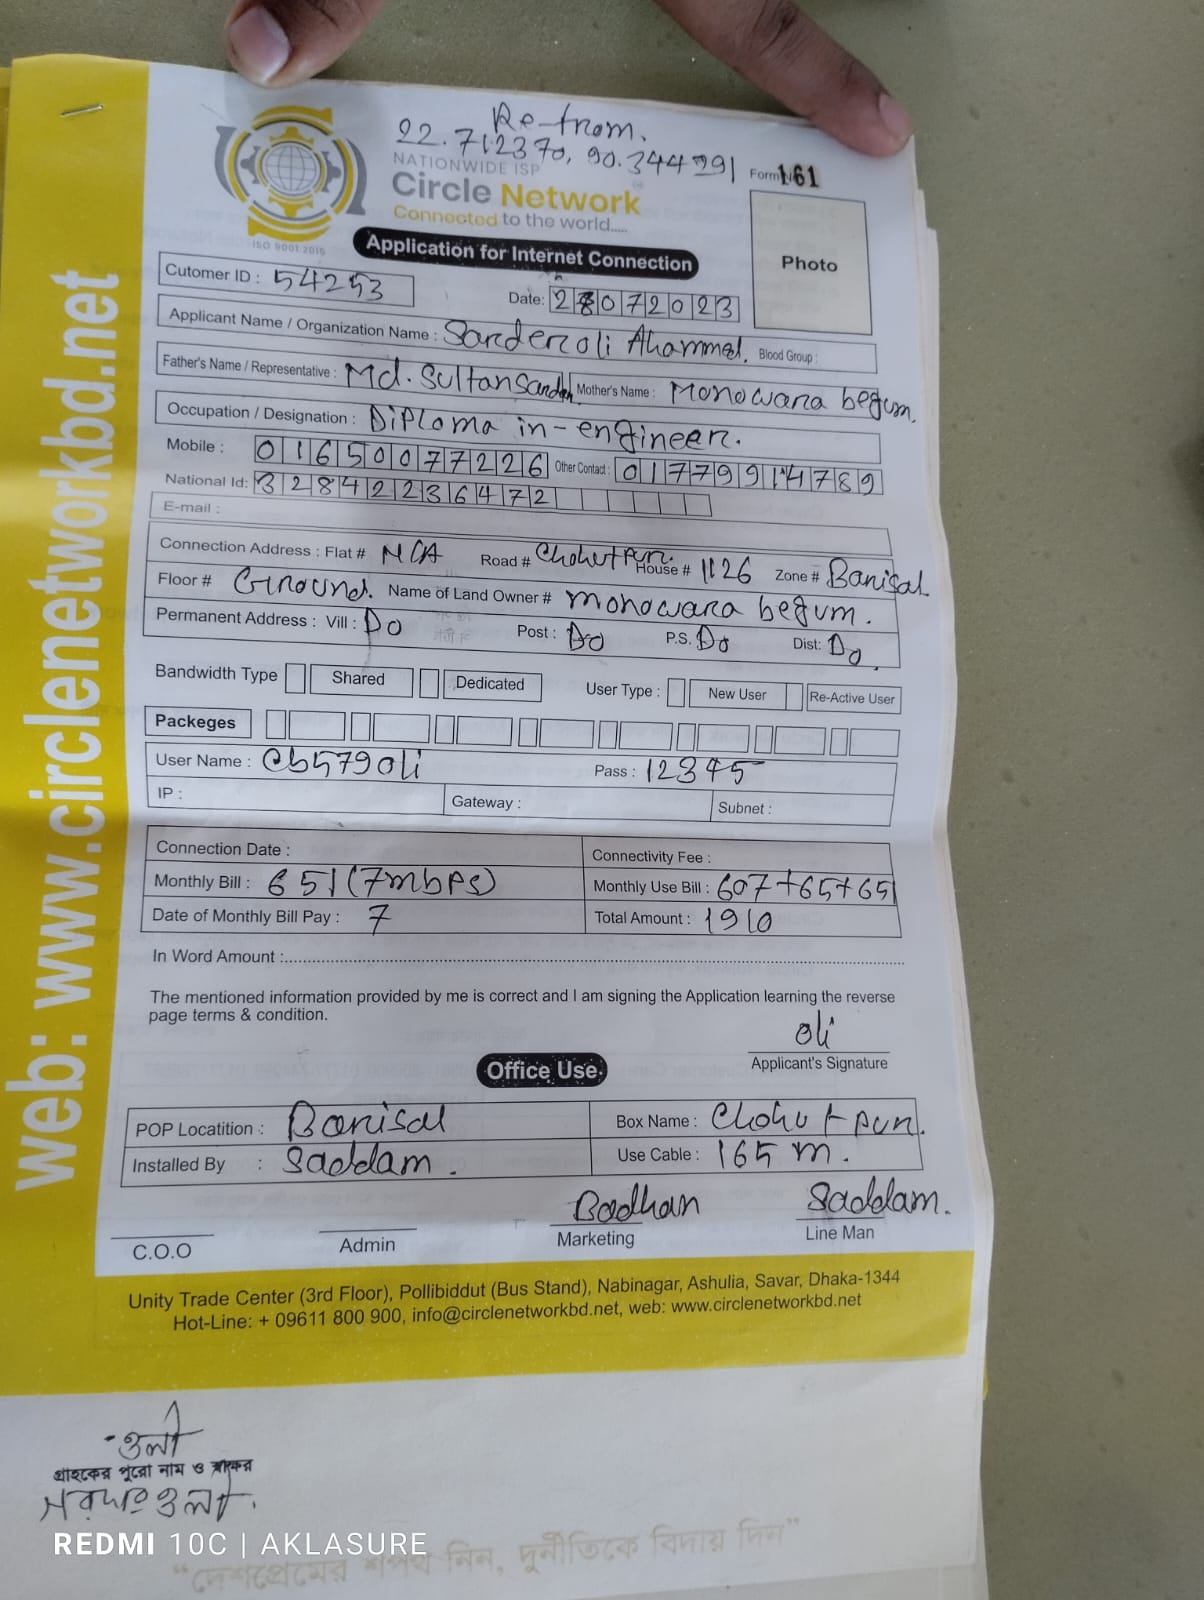 Re-from.
22.712370, 90.344291
NATIONWIDE ISP
Form 161
Circle Network
Connected to the world.....
ISO 9001:2015
Application for Internet Connection
Photo
Cutomer ID : 54253
Date: 28072023
Applicant Name / Organization Name : Sarder oli Ahammed. Blood Group :
Father's Name / Representative : Md. Sultan Sardar Mother's Name : Monowara begum.
Occupation / Designation : Diploma in-engineer.
Mobile : 01650077226 Other Contact : 01779914789
National Id: 32842236472
E-mail :
Connection Address : Flat # N/A Road # Chohutpur. House # 1126 Zone # Barisal
Floor # Ground. Name of Land Owner# monowara begum.
Permanent Address : Vill : Do Post : Do P.S. Do Dist: Do.
Bandwidth Type Shared Dedicated User Type : New User Re-Active User
Packeges
User Name : cb579oli Pass : 12345
IP : Gateway : Subnet :
Connection Date : Connectivity Fee :
Monthly Bill : 651 (7mbps) Monthly Use Bill : 607+65+651
Date of Monthly Bill Pay : 7 Total Amount : 1910
In Word Amount :
The mentioned information provided by me is correct and I am signing the Application learning the reverse
page terms & condition.
oli
Applicant's Signature
Office Use.
POP Locatition : Barisal Box Name : Chohutpur.
Installed By : Saddam. Use Cable : 165 m.
Badhan Saddam.
C.O.O Admin Marketing Line Man
Unity Trade Center (3rd Floor), Pollibiddut (Bus Stand), Nabinagar, Ashulia, Savar, Dhaka-1344
Hot-Line: + 09611 800 900, info@circlenetworkbd.net, web: www.circlenetworkbd.net
web: www.circlenetworkbd.net
ওলী
গ্রাহকের পুরো নাম ও স্বাক্ষর
সরদার ওলী.
REDMI 10C | AKLASURE
“দেশপ্রেমের শপথ নিন, দুর্নীতিকে বিদায় দিন”